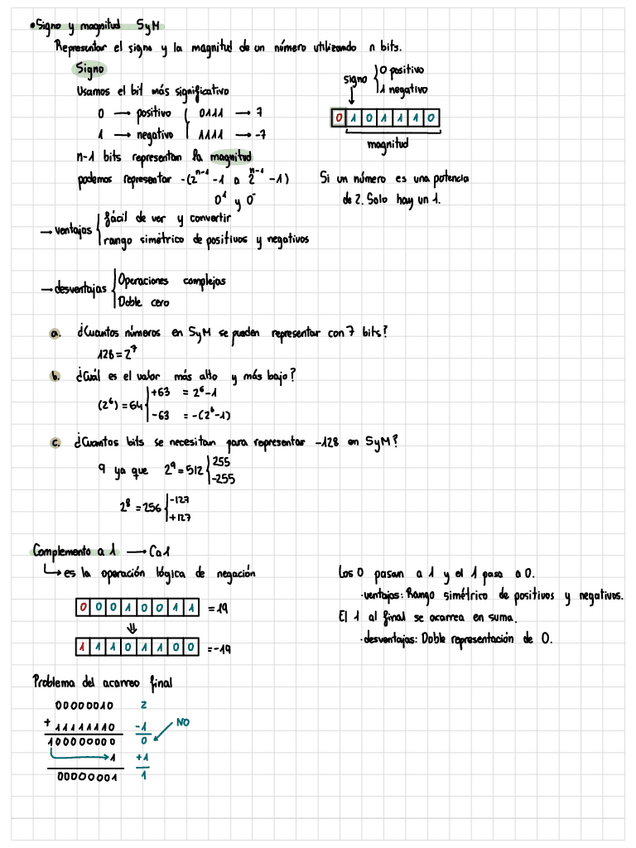 • Signo y magnitud SyM
Representar el signo y la magnitud de un número utilizando n bits.
Signo
Usamos el bit más significativo
0 → positivo { 0111 → 7
1 → negativo { 1111 → -7
n-1 bits representan la magnitud
podemos representar -(2^n-1 - 1 a 2^n-1 - 1)
0⁺ y 0⁻
signo { 0 positivo
1 negativo
0 1 0 1 1 1 0
magnitud
Si un número es una potencia
de 2. Solo hay un 1.
→ ventajas { fácil de ver y convertir
rango simétrico de positivos y negativos
→ desventajas { Operaciones complejas
Doble cero
a. ¿Cuantos números en SyM se pueden representar con 7 bits?
128 = 2⁷
b. ¿Cuál es el valor más alto y más bajo?
(2⁶) = 64 { +63 = 2⁶-1
-63 = -(2⁶-1)
c. ¿Cuantos bits se necesitan para representar -128 en SyM?
9 ya que 2⁹ = 512 { 255
-255
2⁸ = 256 { -127
+127
Complemento a 1 → Ca1
↳ es la operación lógica de negación
0 0 0 1 0 0 1 1 = 19
⇓
1 1 1 0 1 1 0 0 = -19
Los 0 pasan a 1 y el 1 pasa a 0.
· ventajas: Rango simétrico de positivos y negativos.
El 1 al final se acarrea en suma.
· desventajas: Doble representación de 0.
Problema del acarreo final
00000010 2
+ 11111110 -1 NO
100000000 0
1 +1
00000001 1